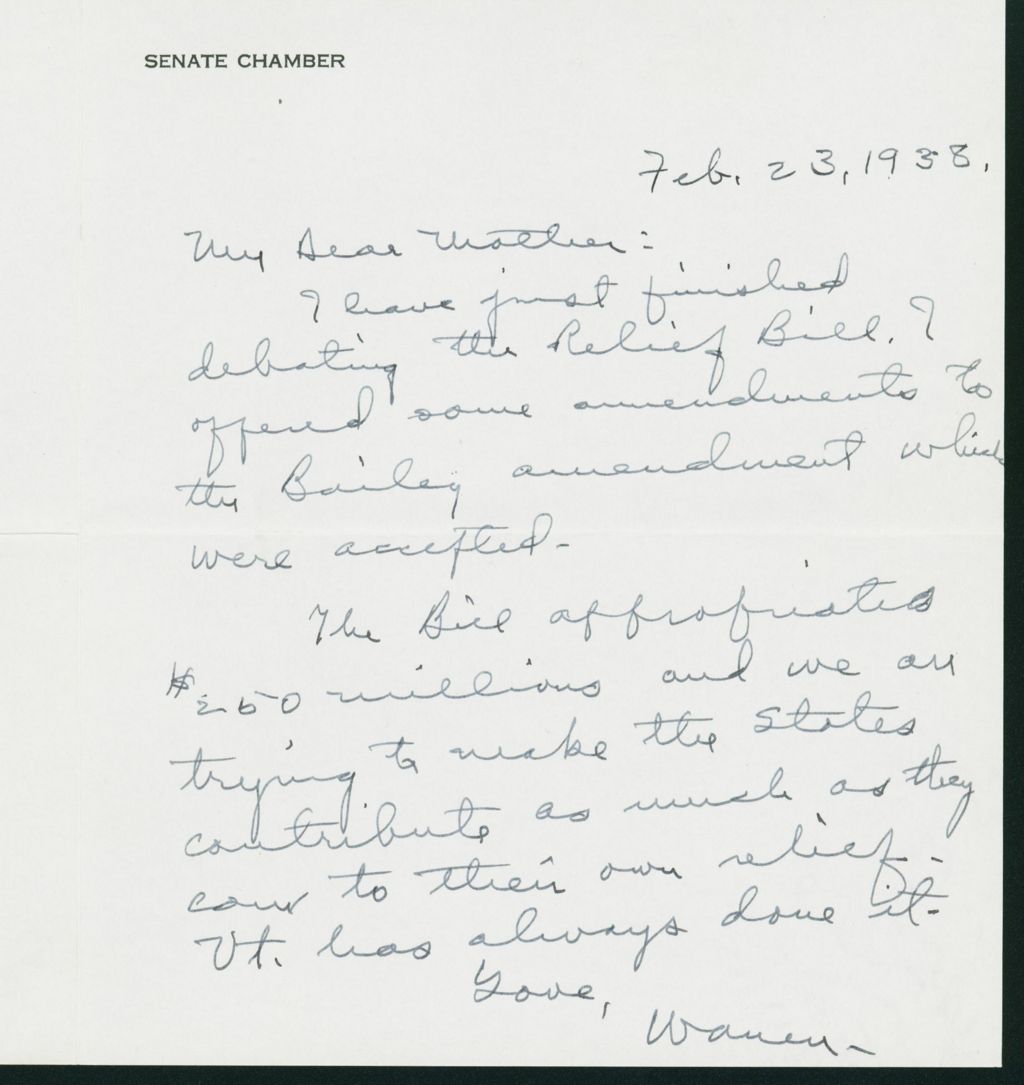 SENATE CHAMBER
Feb. 23, 1938.
My Dear Mother:
I have just finished
debating the Relief Bill. I
offered some amendments to
the Bailey amendment which
were accepted-
The Bill appropriates
$250 millions and we are
trying to make the States
contribute as much as they
can to their own relief-
Vt. has always done it-
Love,
Warren-